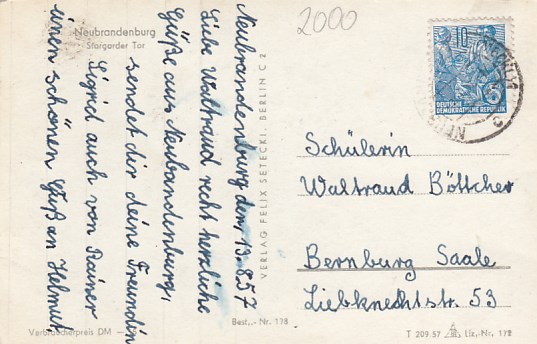 Neubrandenburg
Stargarder Tor
Neubrandenburg den, 13.8.57
Liebe Waltraud recht herzliche
Grüße aus Neubandenburg,
sendet dir deine Freundin
Sigrid auch von Rainer
einen schönen Gruß an Helmut
Verbraucherpreis DM —
Best.-Nr. 138
VERLAG FELIX SETECKI, BERLIN C 2
2000
10
DEUTSCHE
DEMOKRATISCHE REPUBLIK
Schülerin
Waltraud Böttcher
Bernburg Saale
Liebknechtstr. 53
T 209-57 Liz.-Nr. 172